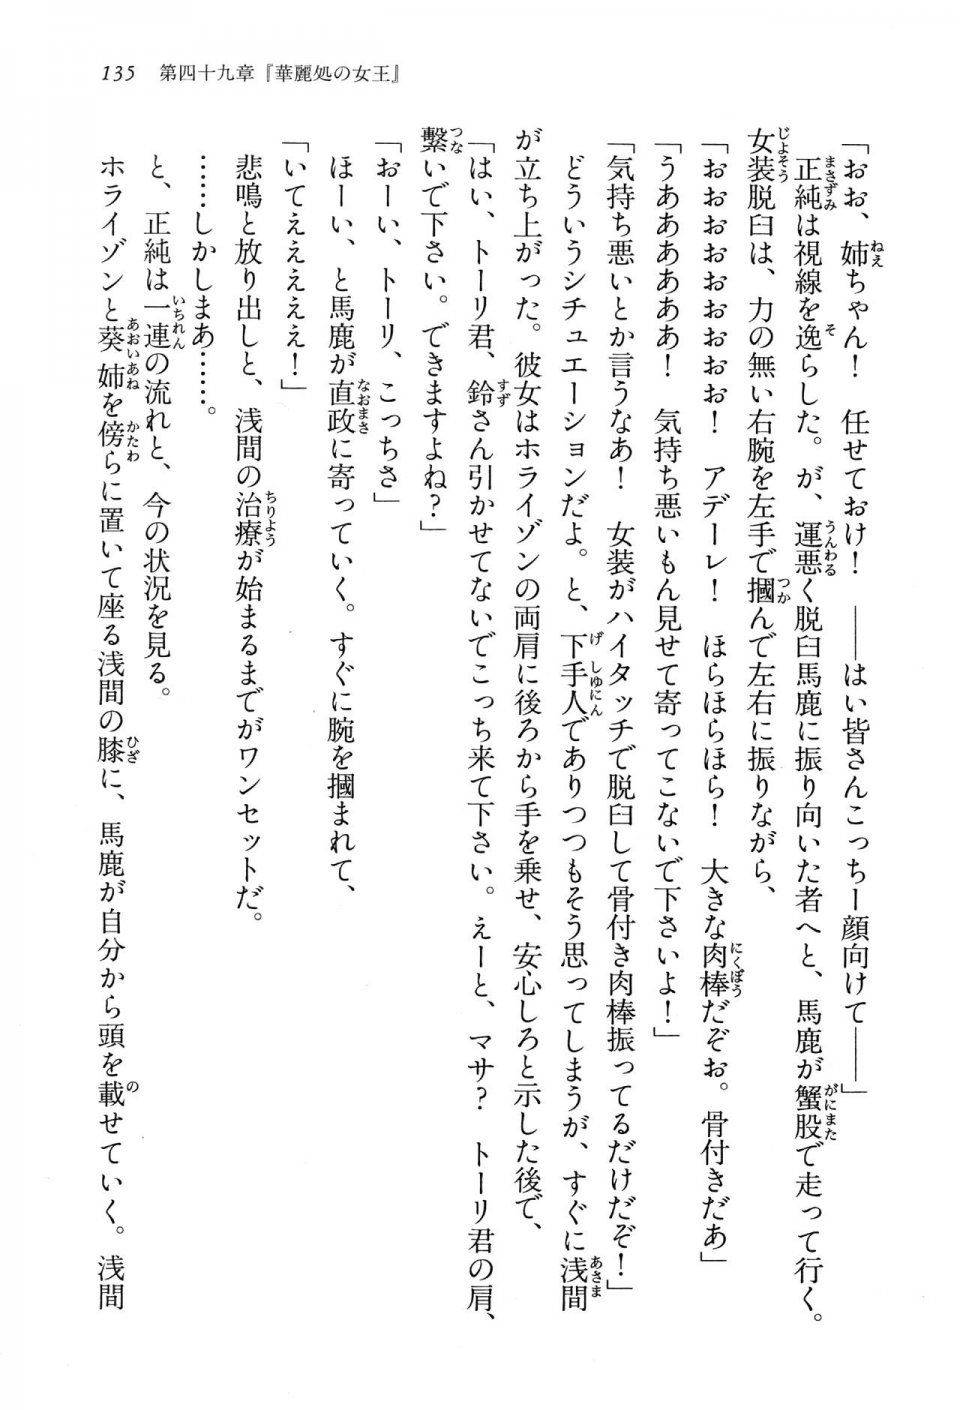 135　第四十九章『華麗処の女王』
「おお、姉ちゃん！　任せておけ！　――はい皆さんこっちー顔向けて――」
　正純は視線を逸らした。が、運悪く脱臼馬鹿に振り向いた者へと、馬鹿が蟹股で走って行く。
女装脱臼は、力の無い右腕を左手で摑んで左右に振りながら、
「おおおおおおおお！　アデーレ！　ほらほらほら！　大きな肉棒だぞぉ。骨付きだあ」
「うああああああ！　気持ち悪いもん見せて寄ってこないで下さいよ！」
「気持ち悪いとか言うなあ！　女装がハイタッチで脱臼して骨付き肉棒振ってるだけだぞ！」
　どういうシチュエーションだよ。と、下手人でありつつもそう思ってしまうが、すぐに浅間
が立ち上がった。彼女はホライゾンの両肩に後ろから手を乗せ、安心しろと示した後で、
「はい、トーリ君、鈴さん引かせてないでこっち来て下さい。えーと、マサ？　トーリ君の肩、
繫いで下さい。できますよね？」
「おーい、トーリ、こっちさ」
　ほーい、と馬鹿が直政に寄っていく。すぐに腕を摑まれて、
「いてえええええ！」
　悲鳴と放り出しと、浅間の治療が始まるまでがワンセットだ。
　……しかしまあ……。
　と、正純は一連の流れと、今の状況を見る。
　ホライゾンと葵姉を傍らに置いて座る浅間の膝に、馬鹿が自分から頭を載せていく。浅間